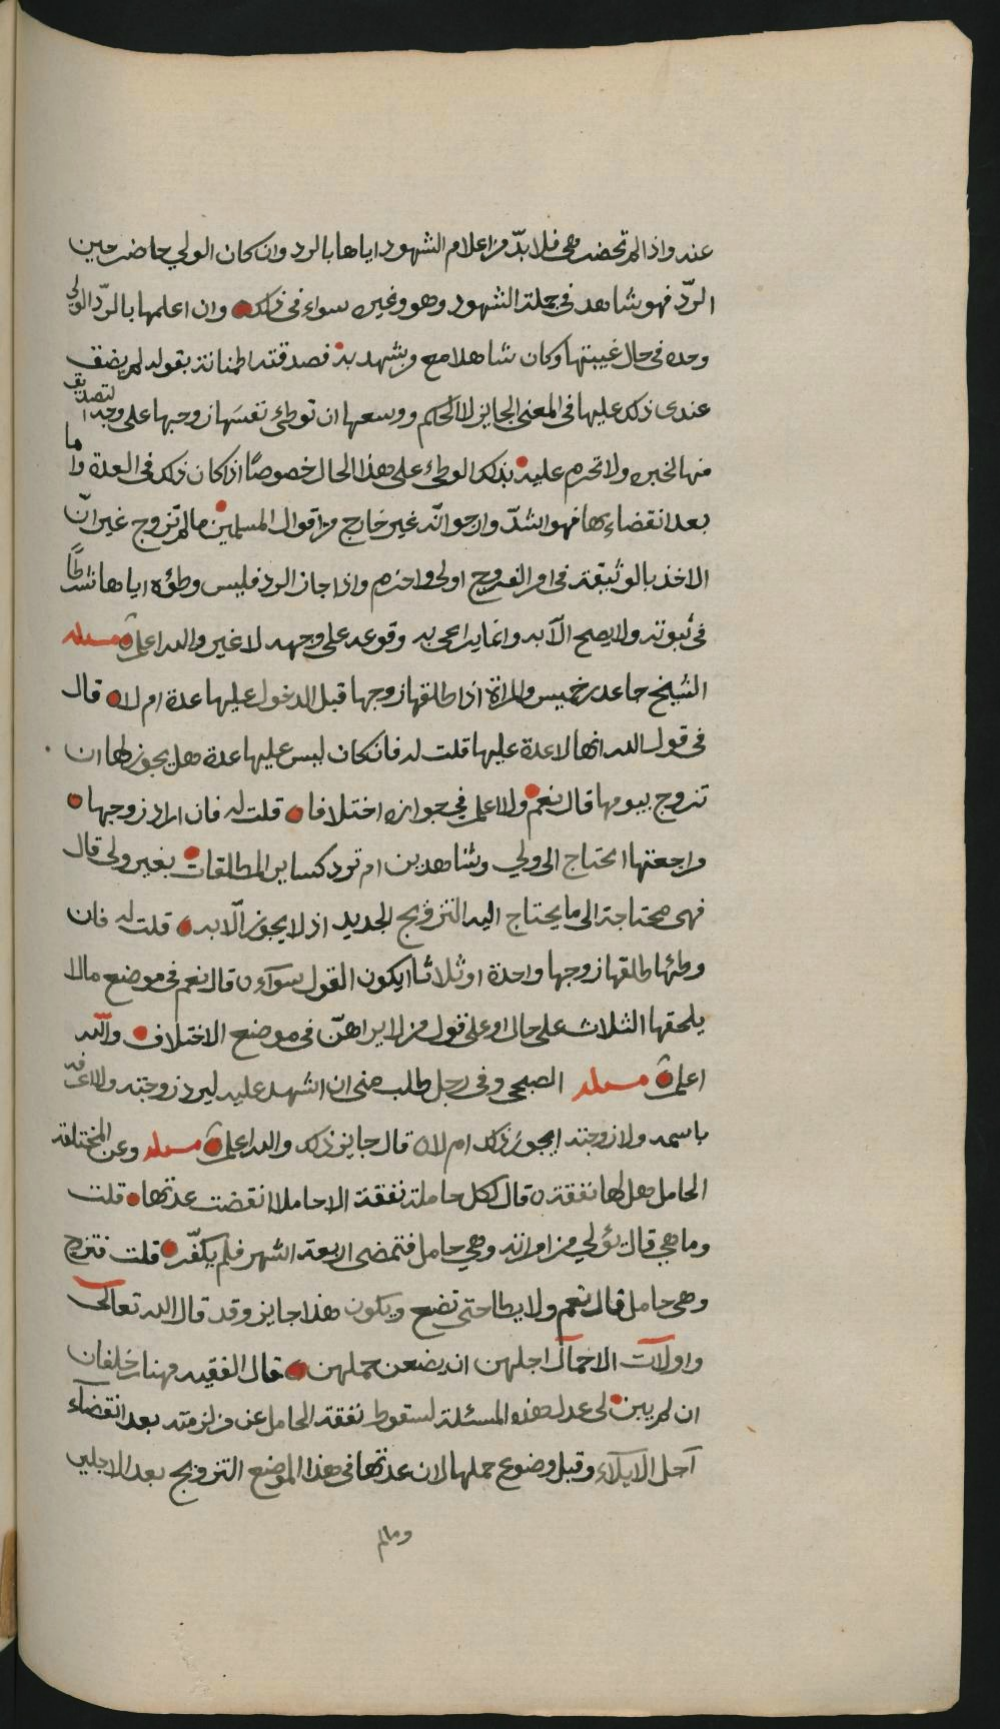 عنه واذا لم تحضر هي فلا بدّ من اعلام الشهود اياها بالرد وان كان الولي حاضر حين
الردّ فهو شاهد في جملة الشهود وهو وغيره سواء في ذلك وان اعلمها بالردّ الولي
وحده في حال غيبتها وكان شاهدا مع من يشهد به فصدقته اطمانة بقوله لم يضق
عندى ذلك عليها في المعنى الجايز لا الحكم ووسعها ان توطئ نفسَها زوجها على وجه التصديق
منها لخبره ولا تحرم عليه بذلك الوطئ على هذا الحال خصوصًا اذا كان ذلك في العدة واما
بعد انقضاءها فهو اشدّ وارجو انّه غير خارج من اقوال المسلمين ما لم تزوج غير انّ
الاخذ بالوثيقة في امر الفروج اولى واحزم واذا جاز الرد فليس وطؤه اياها شرطًا
في ثبوته ولا يصح الّا به وانما يراعى به وقوعه على وجهه لا غير والله اعلم مسئله
الشيخ جاعد بن خميس والمراة اذا طلقها زوجها قبل الدخول عليها عدة ام لا قال
في قول الله انها لا عدة عليها قلت له فان كان ليس عليها عدة هل يجوز لها ان
تزوج بيومها قال نعم ولا اعلم في جوازه اختلافا قلت له فان اراد زوجها
مراجعتها ايحتاج الى ولي وشاهدين ام ترد كساير المطلقات بغير ولى قال
فهى محتاجة الى ما يحتاج اليه التزويج الجديد اذ لا يجوز الّا به قلت له فان
وطئها طلقها زوجها واحدة او ثلاثا ايكون القول سوآء قال نعم في موضع ما لا
يلحقها الثلاث على حال او على قول من لا يراهنّ في موضع الاختلاف والله
اعلم مسئله الصبحي وفي رجل طلب منى ان اشهد عليه ليرد زوجته ولا اعرفه
باسمه ولا زوجته ايجوز ذلك ام لا قال جايز ذلك والله اعلم مسئله وعن المختلعة
الحامل هل لها نفقة قال لكل حاملة نفقة الا حاملا انقضت عدتها قلت
وما هي قال يؤلي من امراته وهي حامل فتمضى اربعة اشهر فلم يكفّر قلت فتزوج
وهي حامل قال نعم ولا يطا حتى تضع ويكون هذا جايز وقد قال الله تعالى
واولات الاحمال اجلهن ان يضعن حملهن قال الفقيه مهنا بن خلفان
ان لم يبين لى عدل هذه المسئلة لسقوط نفقة الحامل عن من لزمته بعد انقضآء
آجل الايلآء وقبل وضوع حملها لان عدتها في هذا الموضع التزويج بعد الاجلين
ومالم